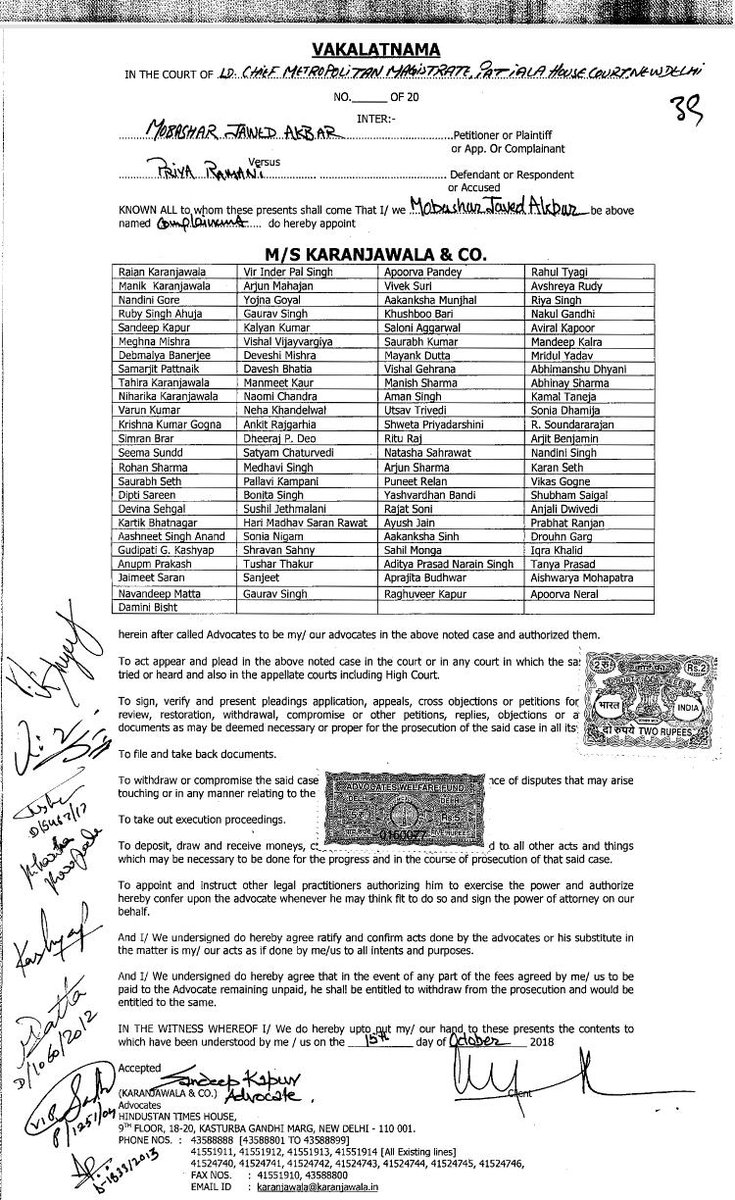 VAKALATNAMA
IN THE COURT OF LD. CHIEF METROPOLITAN MAGISTRATE, PATIALA HOUSE COURT, NEW DELHI
NO.______ OF 20
39
INTER:-
MOBASHAR JAWED AKBAR Petitioner or Plaintiff
or App. Or Complainant
Versus
PRIYA RAMANI Defendant or Respondent
or Accused
KNOWN ALL to whom these presents shall come That I/ we Mobashar Jawed Akbar be above
named Complainant do hereby appoint
M/S KARANJAWALA & CO.
Raian Karanjawala Vir Inder Pal Singh Apoorva Pandey Rahul Tyagi
Manik Karanjawala Arjun Mahajan Vivek Suri Avshreya Rudy
Nandini Gore Yojna Goyal Aakanksha Munjhal Riya Singh
Ruby Singh Ahuja Gaurav Singh Khushboo Bari Nakul Gandhi
Sandeep Kapur Kalyan Kumar Saloni Aggarwal Aviral Kapoor
Meghna Mishra Vishal Vijayvargiya Saurabh Kumar Mandeep Kalra
Debmalya Banerjee Deveshi Mishra Mayank Dutta Mridul Yadav
Samarjit Pattnaik Davesh Bhatia Vishal Gehrana Abhimanshu Dhyani
Tahira Karanjawala Manmeet Kaur Manish Sharma Abhinay Sharma
Niharika Karanjawala Naomi Chandra Aman Singh Kamal Taneja
Varun Kumar Neha Khandelwal Utsav Trivedi Sonia Dhamija
Krishna Kumar Gogna Ankit Rajgarhia Shweta Priyadarshini R. Soundararajan
Simran Brar Dheeraj P. Deo Ritu Raj Arjit Benjamin
Seema Sundd Satyam Chaturvedi Natasha Sahrawat Nandini Singh
Rohan Sharma Medhavi Singh Arjun Sharma Karan Seth
Saurabh Seth Pallavi Kampani Puneet Relan Vikas Gogne
Dipti Sareen Bonita Singh Yashvardhan Bandi Shubham Saigal
Devina Sehgal Sushil Jethmalani Rajat Soni Anjali Dwivedi
Kartik Bhatnagar Hari Madhav Saran Rawat Ayush Jain Prabhat Ranjan
Aashneet Singh Anand Sonia Nigam Aakanksha Sinh Drouhn Garg
Gudipati G. Kashyap Shravan Sahny Sahil Monga Iqra Khalid
Anupm Prakash Tushar Thakur Aditya Prasad Narain Singh Tanya Prasad
Jaimeet Saran Sanjeet Aprajita Budhwar Aishwarya Mohapatra
Navandeep Matta Gaurav Singh Raghuveer Kapur Apoorva Neral
Damini Bisht
herein after called Advocates to be my/ our advocates in the above noted case and authorized them.
To act appear and plead in the above noted case in the court or in any court in which the sa
tried or heard and also in the appellate courts including High Court.
2 रु Rs.2
भारत INDIA
दो रुपये TWO RUPEES
To sign, verify and present pleadings application, appeals, cross objections or petitions for
review, restoration, withdrawal, compromise or other petitions, replies, objections or a
documents as may be deemed necessary or proper for the prosecution of the said case in all its
To file and take back documents.
To withdraw or compromise the said case nce of disputes that may arise
touching or in any manner relating to the
ADVOCATES WELFARE FUND
0160077
To take out execution proceedings.
To deposit, draw and receive moneys, c d to all other acts and things
which may be necessary to be done for the progress and in the course of prosecution of that said case.
To appoint and instruct other legal practitioners authorizing him to exercise the power and authorize
hereby confer upon the advocate whenever he may think fit to do so and sign the power of attorney on our
behalf.
And I/ We undersigned do hereby agree ratify and confirm acts done by the advocates or his substitute in
the matter is my/ our acts as if done by me/us to all intents and purposes.
And I/ We undersigned do hereby agree that in the event of any part of the fees agreed by me/ us to be
paid to the Advocate remaining unpaid, he shall be entitled to withdraw from the prosecution and would be
entitled to the same.
IN THE WITNESS WHEREOF I/ We do hereby upto put my/ our hand to these presents the contents to
which have been understood by me / us on the 15th day of October 2018
Accepted
Sandeep Kapur
(KARANJAWALA & CO.) Advocate.
Client
Advocates
HINDUSTAN TIMES HOUSE,
9TH FLOOR, 18-20, KASTURBA GANDHI MARG, NEW DELHI - 110 001.
PHONE NOS. : 43588888 [43588801 TO 43588899]
41551911, 41551912, 41551913, 41551914 [All Existing lines]
41524740, 41524741, 41524742, 41524743, 41524744, 41524745, 41524746,
FAX NOS. : 41551910, 43588800
EMAIL ID : karanjawala@karanjawala.in
Kashyap
Matta
D/1060/2012